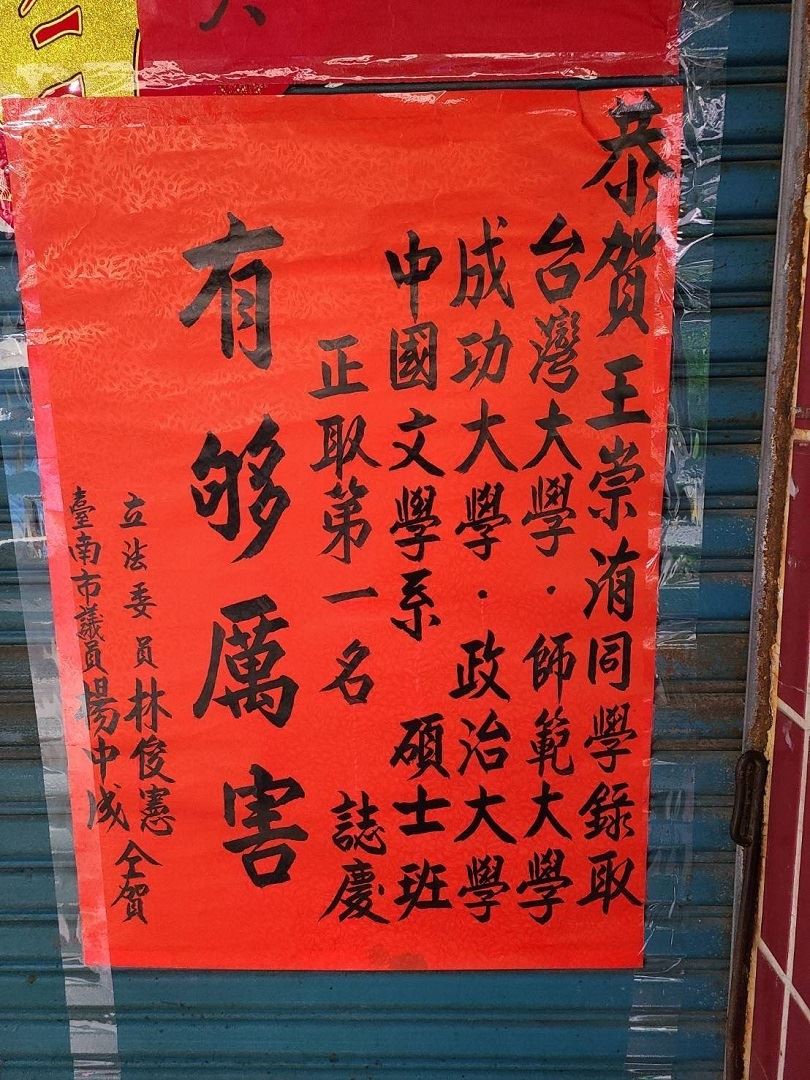 恭賀王崇洧同學錄取
台灣大學·師範大學
成功大學·政治大學
中國文學系 碩士班
正取第一名 誌慶
有够厲害
立法委員 林俊憲
臺南市議員 楊中成 仝賀